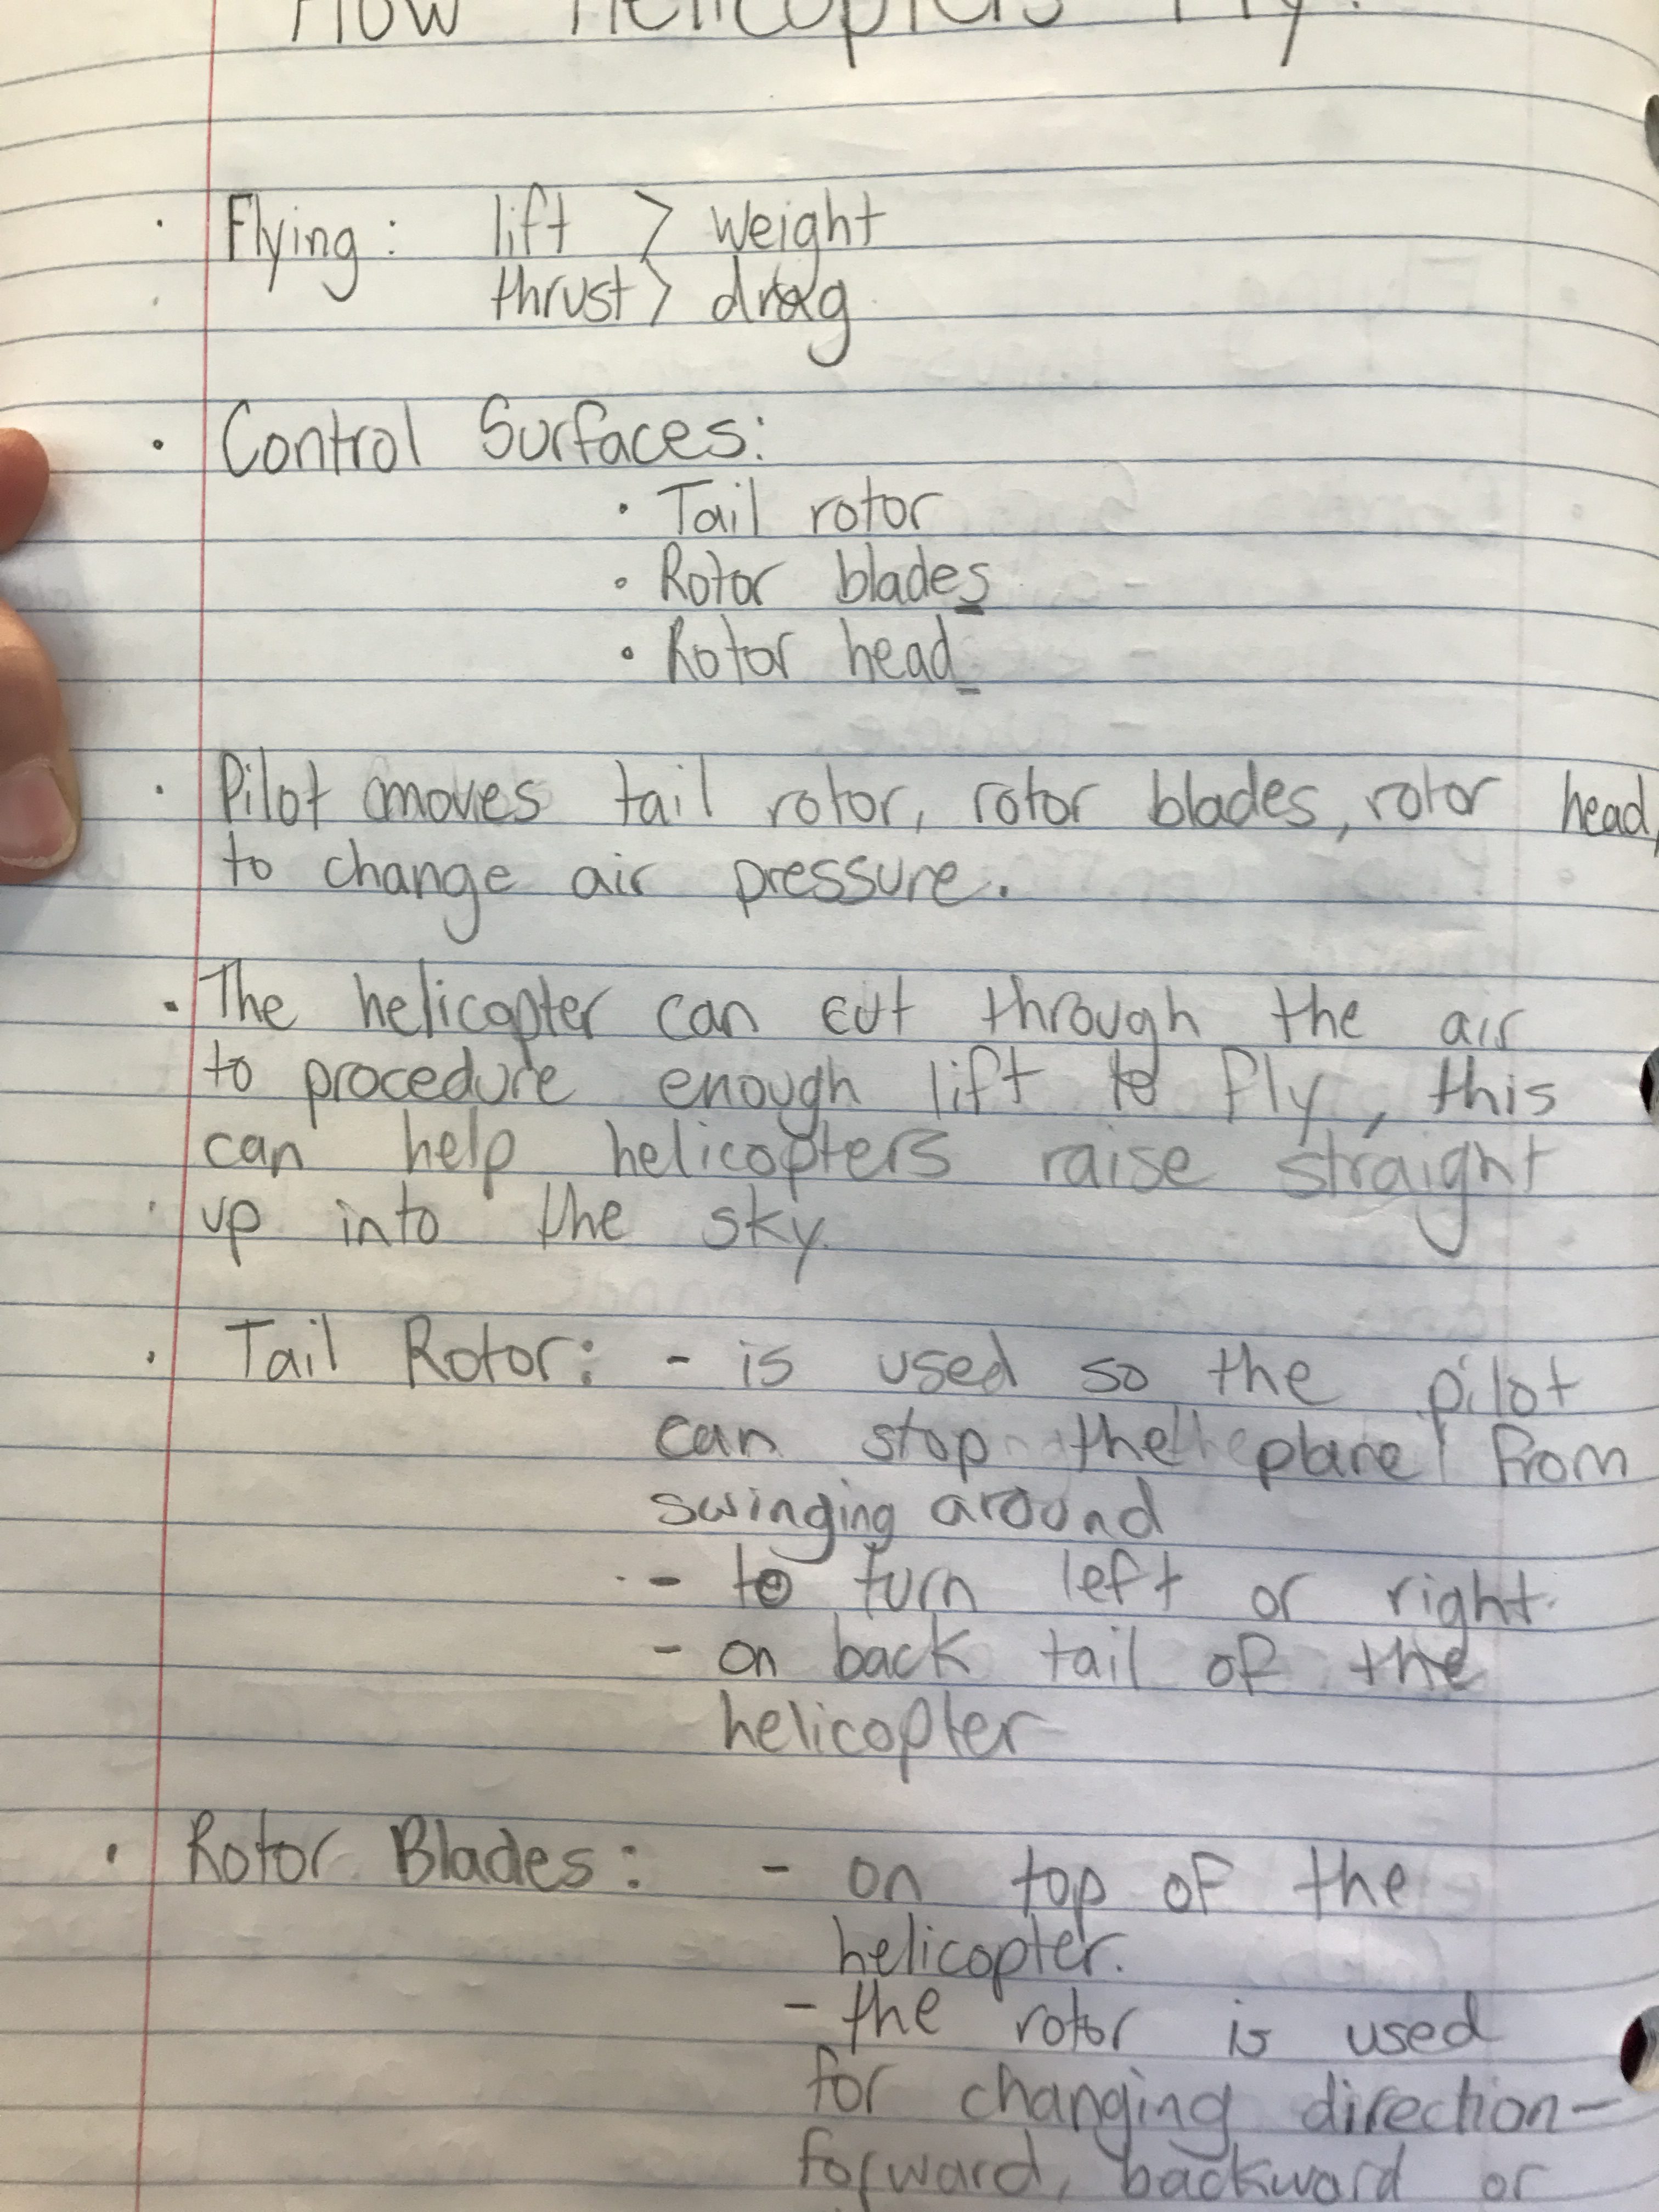 How Helicopters Fly?
· Flying: lift > weight
thrust > drag
· Control Surfaces:
· Tail rotor
· Rotor blades
· Rotor head
· Pilot moves tail rotor, rotor blades, rotor head,
to change air pressure.
· The helicopter can cut through the air
to procedure enough lift to fly, this
can help helicopters raise straight
up into the sky.
· Tail Rotor: - is used so the pilot
can stop the plane from
swinging around
- to turn left or right.
- on back tail of the
helicopter
· Rotor Blades: - on top of the
helicopter.
- the rotor is used
for changing direction-
forward, backward or